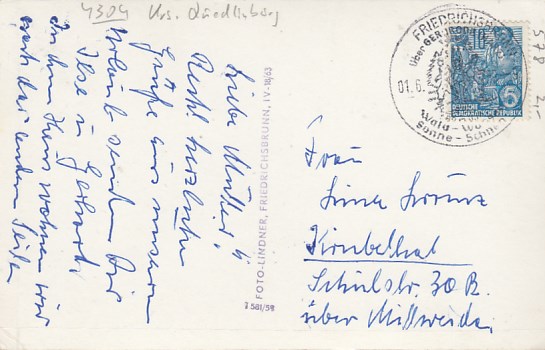 4304 Krs. Quedlinburg
Liebe Mutter!
Recht herzliche
Grüße aus unserem
Urlaub senden Dir
Ilse u. Gerhard.
In dem Haus wohnen wir
nach der anderen Seite
FOTO-LINDNER, FRIEDRICHSBRUNN, IV-18/63
1581/59
FRIEDRICHSBRUNN
über GERNRODE
01.6.
Wald
Sonne - Schnee
10
DEUTSCHE
DEMOKRATISCHE REPUBLIK
5
578
Frau
Schulstr. 30 B.
über Mittweida